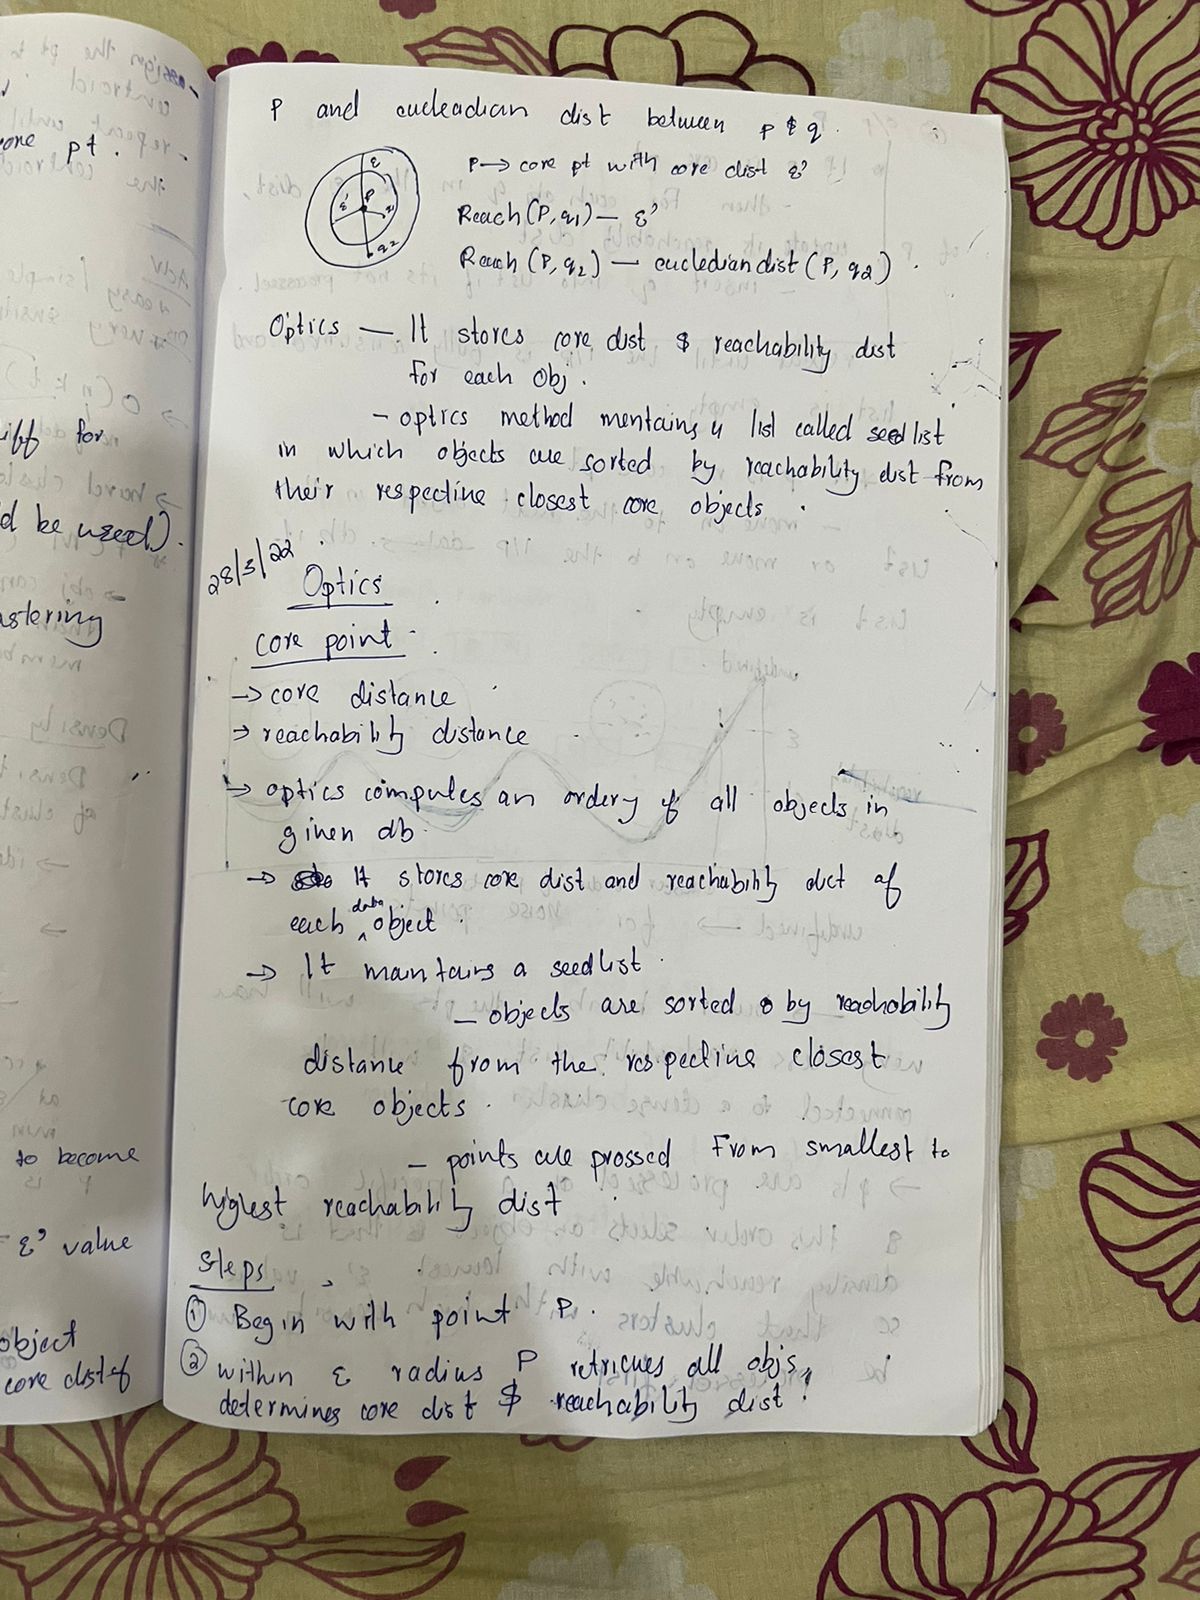 core pt.
iff for
d be used).
astering
to become
ε' value
object
core dist of
P and eucleadian dist between p & q.
ε
ε'
P
q2
P → core pt with core dist ε'
Reach (P, q1) — ε'
Reach (P, q2) — eucledian dist (P, q2).
Optics — It stores core dist & reachability dist
for each obj.
- optics method mentains a list called seed list
in which objects are sorted by reachability dist from
their respective closest core objects.
28/3/22
Optics
core point
→ core distance
→ reachability distance
→ optics computes an ordery of all objects in
given db.
→ It stores core dist and reachability dict of
each data object.
→ It maintains a seedlist.
- objects are sorted by reachability
distance from the respective closest
core objects.
- points are prossed From smallest to
highest reachability dist
Steps
① Begin with point P.
② within ε radius P retrieves all objs,
determines core dist & reachability dist.